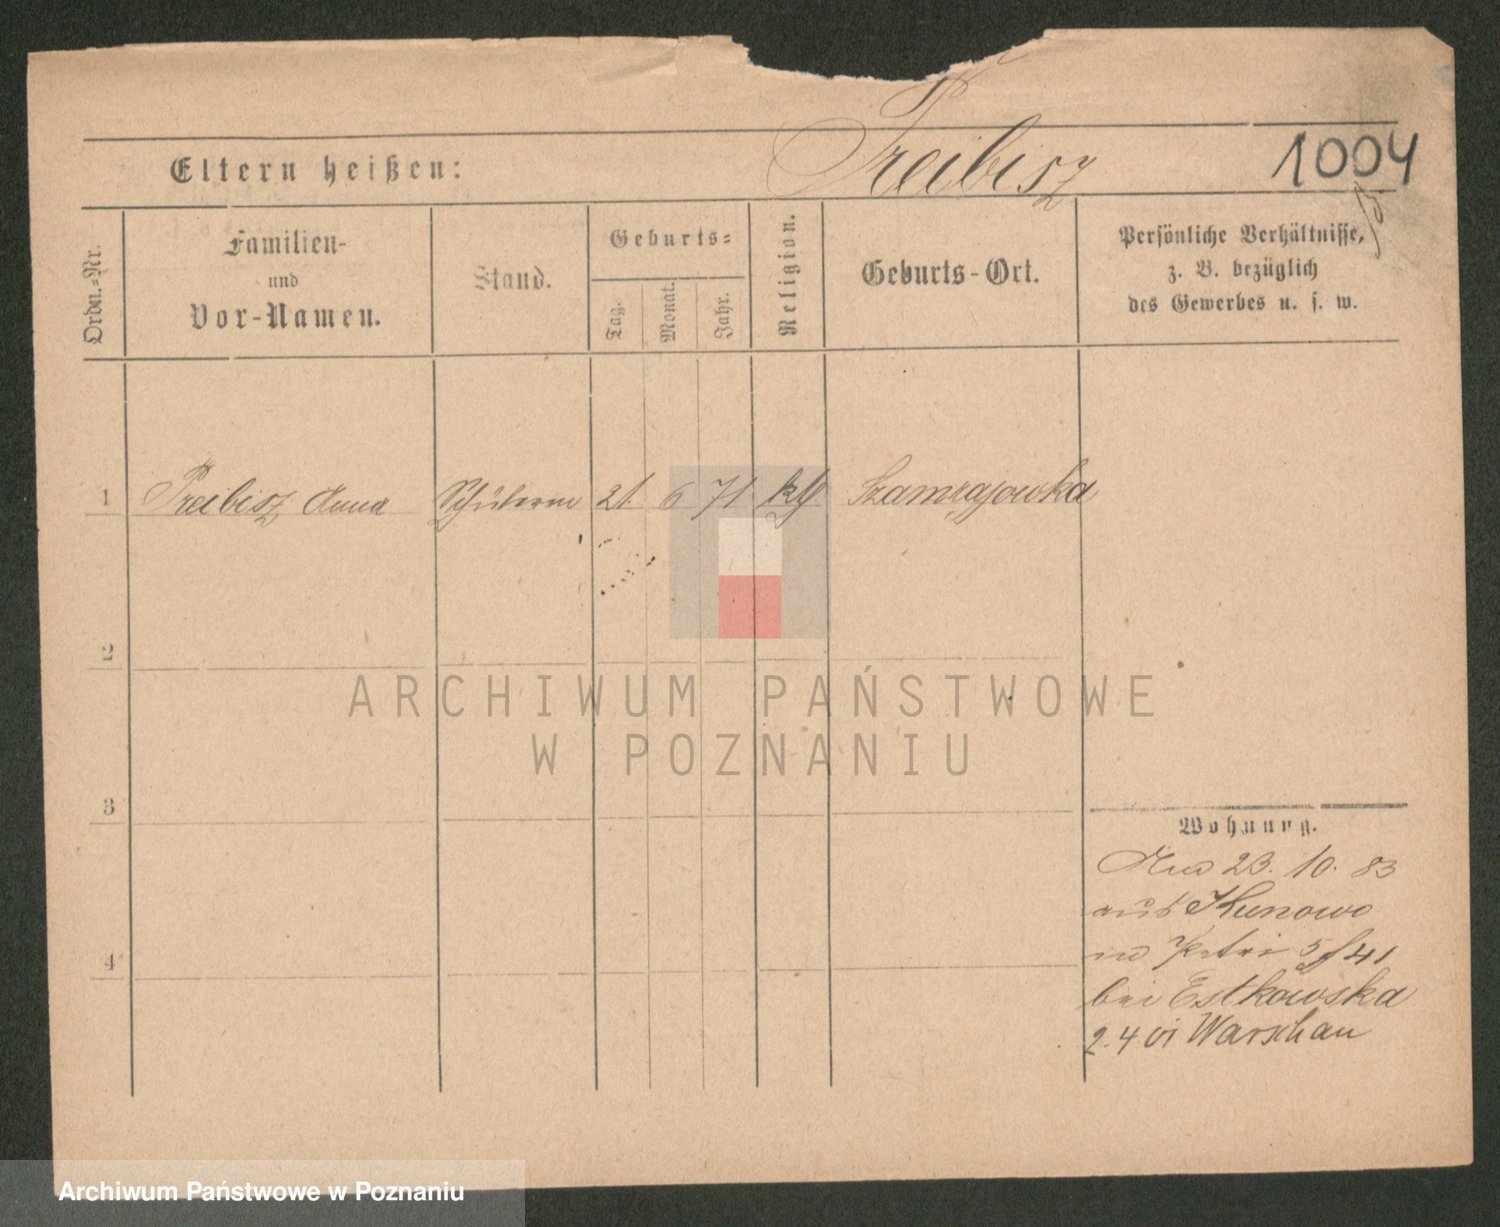 Eltern heißen:
Preibisz
1004
Ordn.-Nr.
Familien-
und
Vor-Namen.
Stand.
Geburts-
Tag.
Monat.
Jahr.
Religion.
Geburts-Ort.
Persönliche Verhältnisse,
z. B. bezüglich
des Gewerbes u. s. w.
1 Preibisz Anna Schülerin 21 6 71 kth Szamrajowka
2
3
4
ARCHIWUM PAŃSTWOWE
W POZNANIU
Wohnung.
23. 10. 83
aus Kunowo
Petri 5/41
bei Estkowska
2.4.01 Warschau
Archiwum Państwowe w Poznaniu